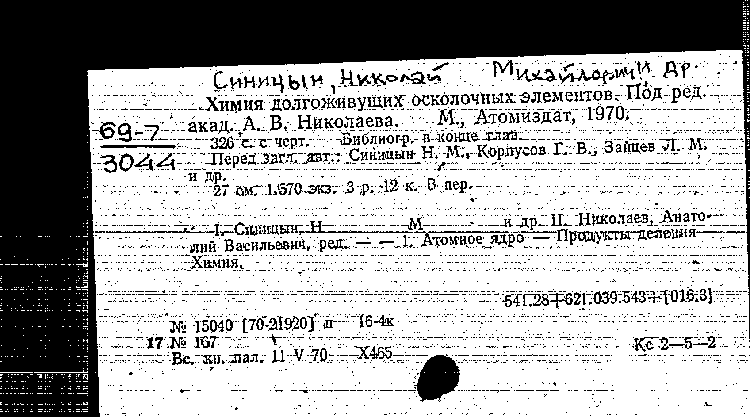 Синицын, Николай Михайлович и др.
Химия долгоживущих осколочных элементов. Под ред.
акад. А. В. Николаева. М., Атомиздат, 1970.
69-7
3044
326 с. с черт. Библиогр. в конце глав.
Перед загл. авт.: Синицын Н. М., Корпусов Г. В., Зайцев Л. М.
и др.
27 см. 1.570 экз. 3 р. 12 к. В пер.
I. Синицын, Н М и др. II. Николаев, Анато-
лий Васильевич, ред. — — 1. Атомное ядро — Продукты деления
Химия.
541.28+621.039.543+[016.3]
№ 15040 [70-21920] п 16-4к
17 № 167
Вс. кн. пал. 11 V 70. Х465
Кс 2—5—2